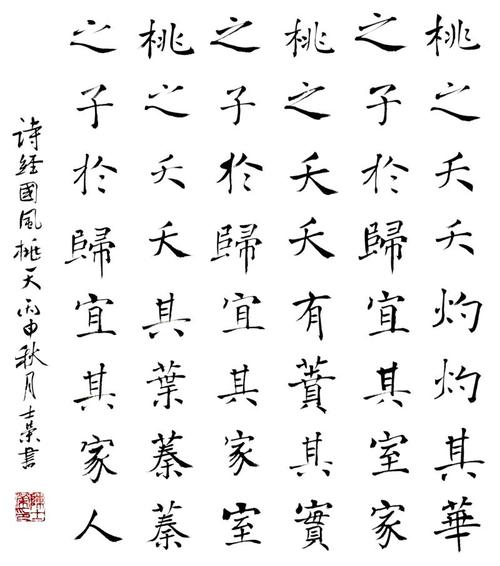 桃之夭夭灼灼其華
之子於歸宜其室家
桃之夭夭有蕡其實
之子於歸宜其家室
桃之夭夭其葉蓁蓁
之子於歸宜其家人
詩經國風桃夭丙申秋月士榮書